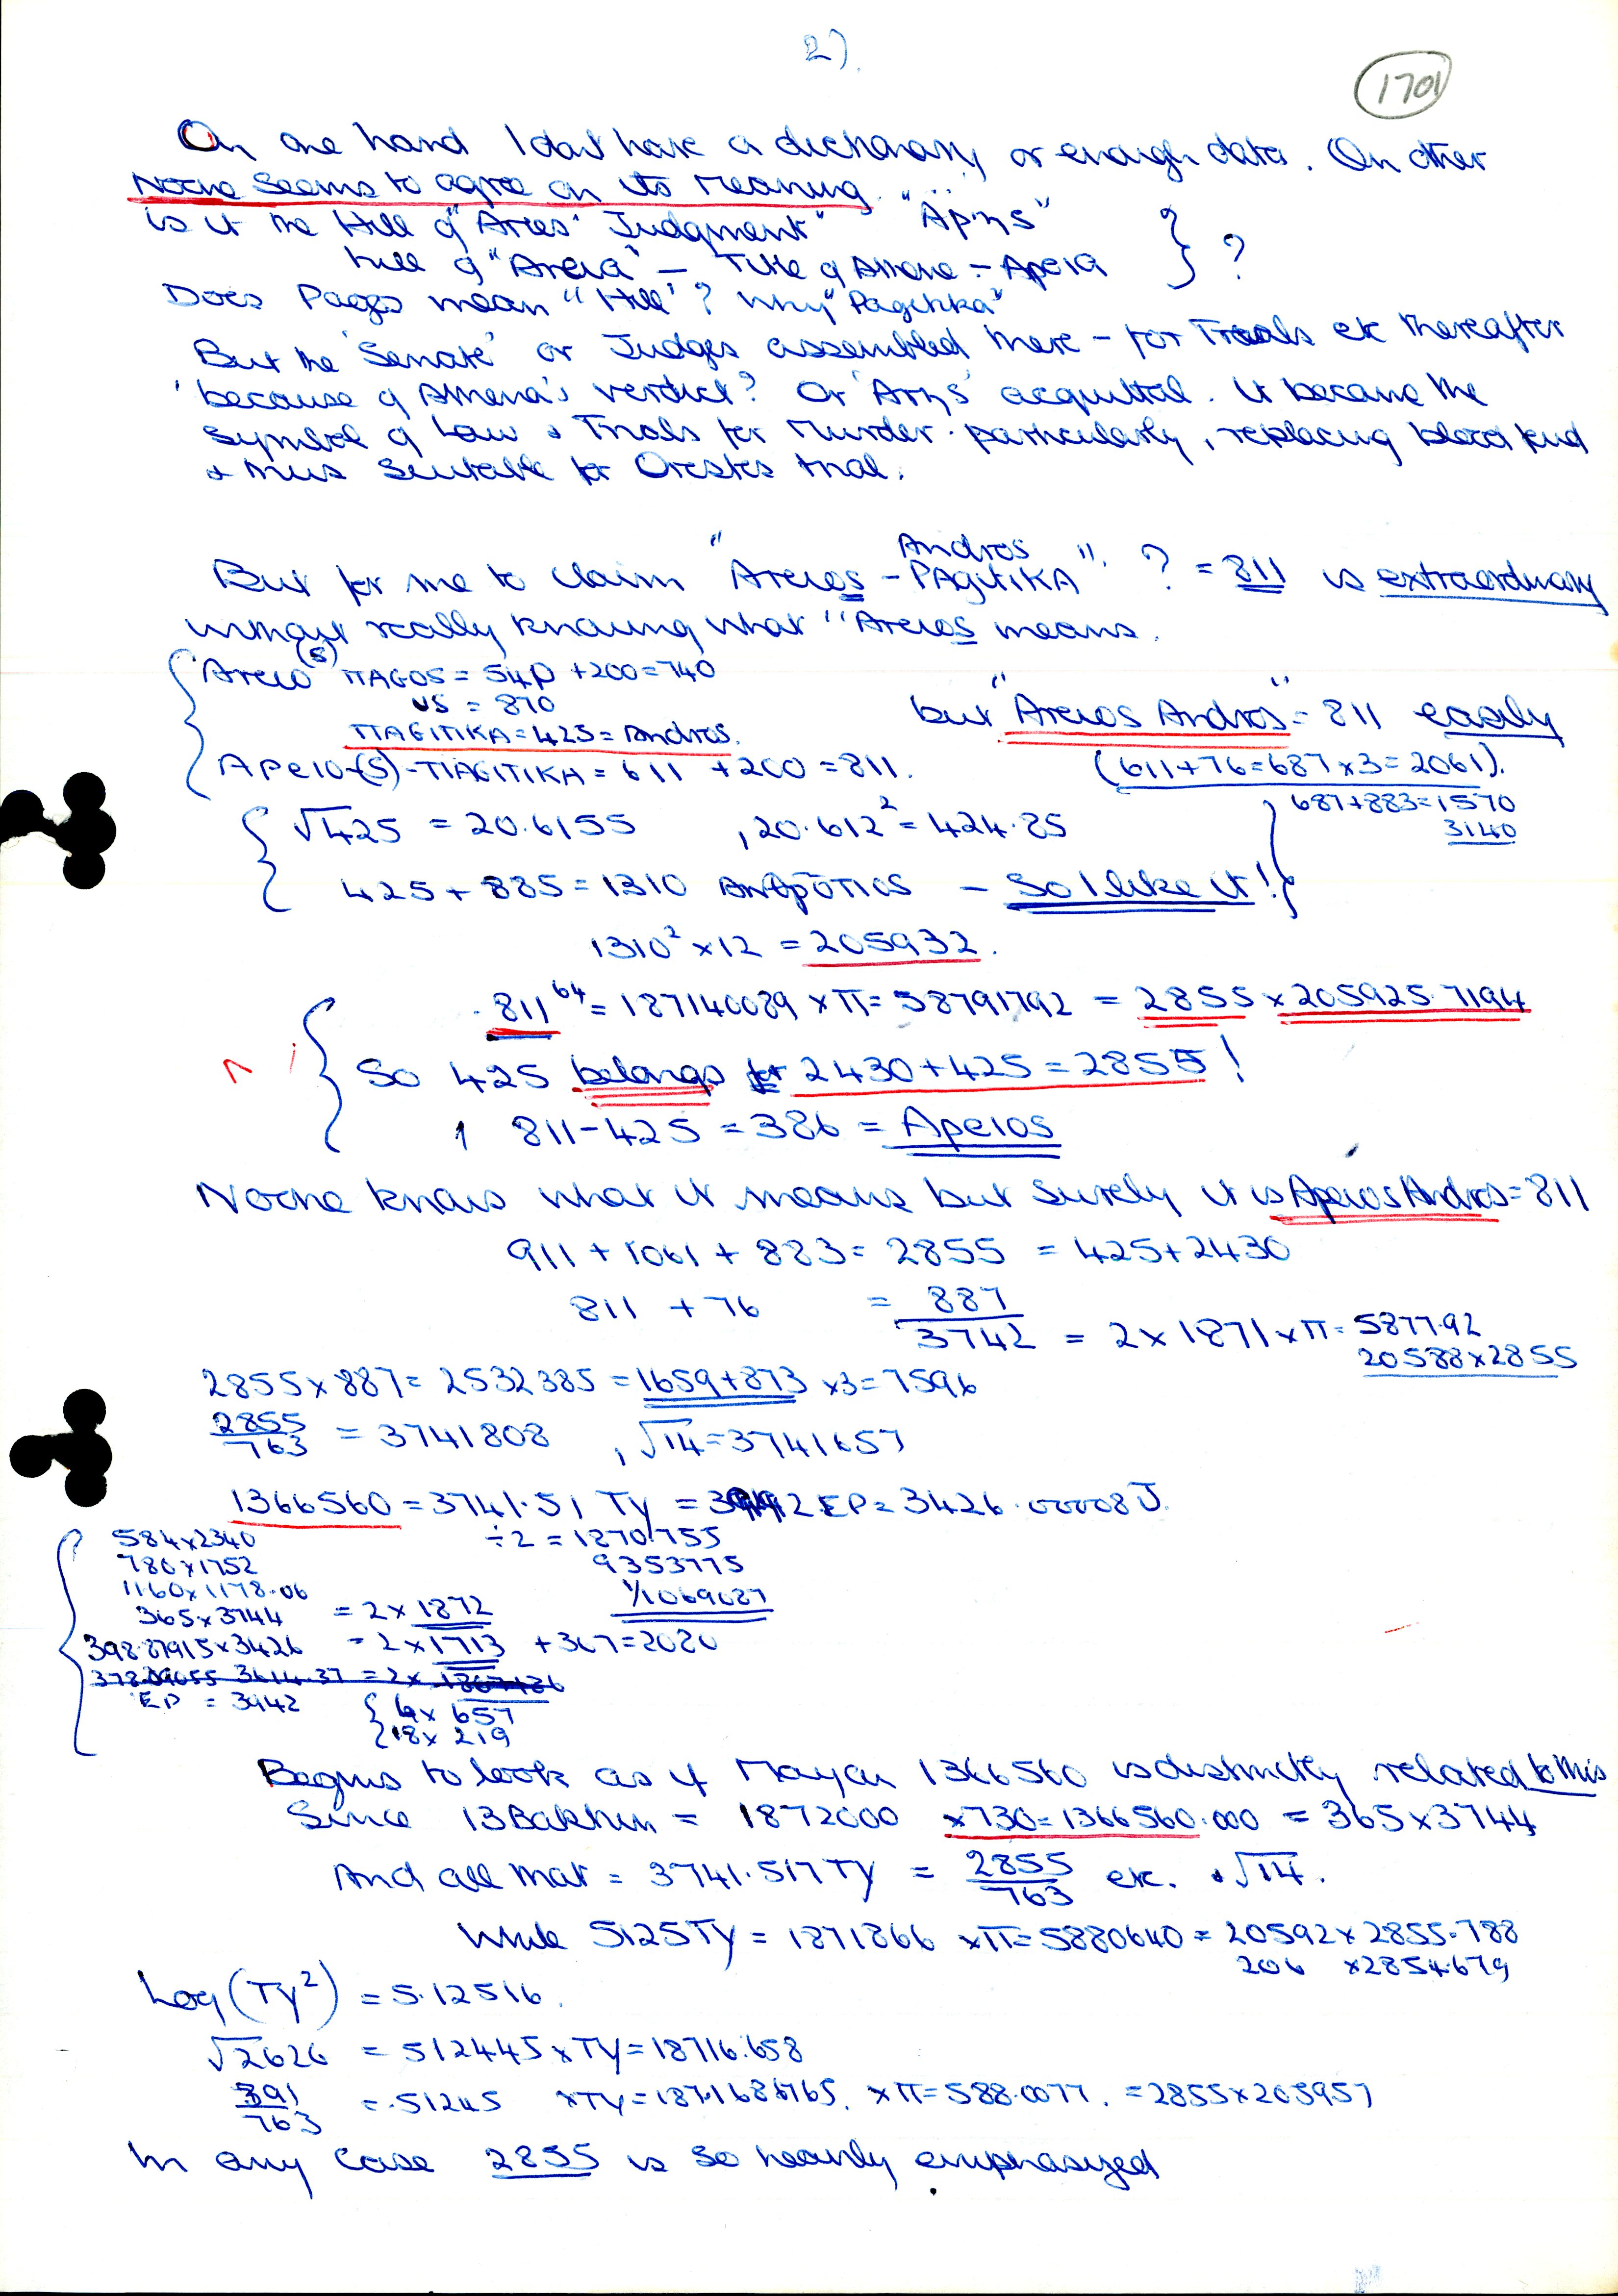 2).
1701
On one hand I dont have a dictionary or enough data. On other
Noone seems to agree on its meaning. "Αρης"
is it the Hill of "Ares' Judgment"
hill of "Areia" – Title of Athene – Αρεια } ?
Does Pagos mean "Hill"? Why "Pagitika"
But the 'Senate' or Judges assembled there – for Trials etc thereafter
because of Athena's verdict? Or 'Arys' acquittal. It became the
Symbol of Law & Trials for Murder particularly, replacing blood feud
& thus Suitable for Orestes trial.
Andros
But for me to claim "Areios – PAgitiKA" ? = 811 is extraordinary
without really knowing what "Areios means.
Areio(s) ΠAGOS = 540 +200=740
US = 870
ΠAGITIKA = 425 = Andros.
but "Areios Andros" = 811 easily
Αρειο-(S)-ΠAGITIKA = 611 +200 = 811.
(611+76=687 x3=2061).
687+883=1570
3140
√425 = 20.6155 , 20.612² = 424.85
425 + 885 = 1310 Ανθρōπος – So I like it!
1310² x 12 = 205932.
811⁶⁴ = 187140089 x π = 58791792 = 2855 x 205925.7194
So 425 belongs for 2430+425 = 2855!
, 811–425 = 386 = Αρειος
Noone knows what it means but surely it is Αρειος Andros = 811
911 + 1061 + 883 = 2855 = 425+2430
811 + 76 = 887
3742 = 2 x 1871 x π = 5877.92
20588 x 2855
2855 x 887 = 2532385 = 1659+873 x3=7596
2855/763 = 3741808 , √14 = 3741657
1366560 = 3741.51 Ty = EP = 3426.00008 J.
584x2340 ÷2 = 1870.755
780x1752 9353775
1160x1178.06 1/1069087
365x3744 = 2 x 1872
398.87915x3426 = 2 x 1713 +367=2080
EP = 3942 { 6 x 657
{ 18 x 219
Begins to look as if Mayan 1366560 is distinctly related to this
Since 13 Baktun = 1872000 x730=1366560.000 = 365 x 3744
And all that = 3741.517 Ty = 2855/763 etc. & √14.
While 5125 Ty = 1871866 x π = 5880640 = 20592 x 2855.788
206 x 2854.679
Log (Ty²) = 5.12516.
√2626 = 512445 x Ty = 18716.658
391/763 = .51245 x Ty = 187.1686765. x π = 588.0077. = 2855 x 205957
In any case 2855 is so heavily emphasized